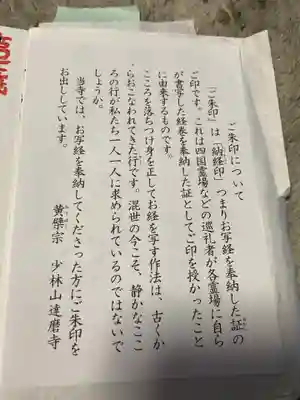 ご朱印について
「ご朱印」は「納経印」つまりお写経を奉納した証の
ご印です。これは四国霊場などの巡礼者が各霊場に自ら
が書写した経巻を奉納した証としてご印を授かったこと
に由来するものです。
こころを落ちつけ身を正してお経を写す作法は、古くか
らおこなわれてきた行です。混世の今こそ、静かなここ
ろの行が私たち一人一人に求められているのではないで
しょうか。
当寺では、お写経を奉納してくださった方にご朱印を
お出ししています。
黄檗宗 少林山達磨寺